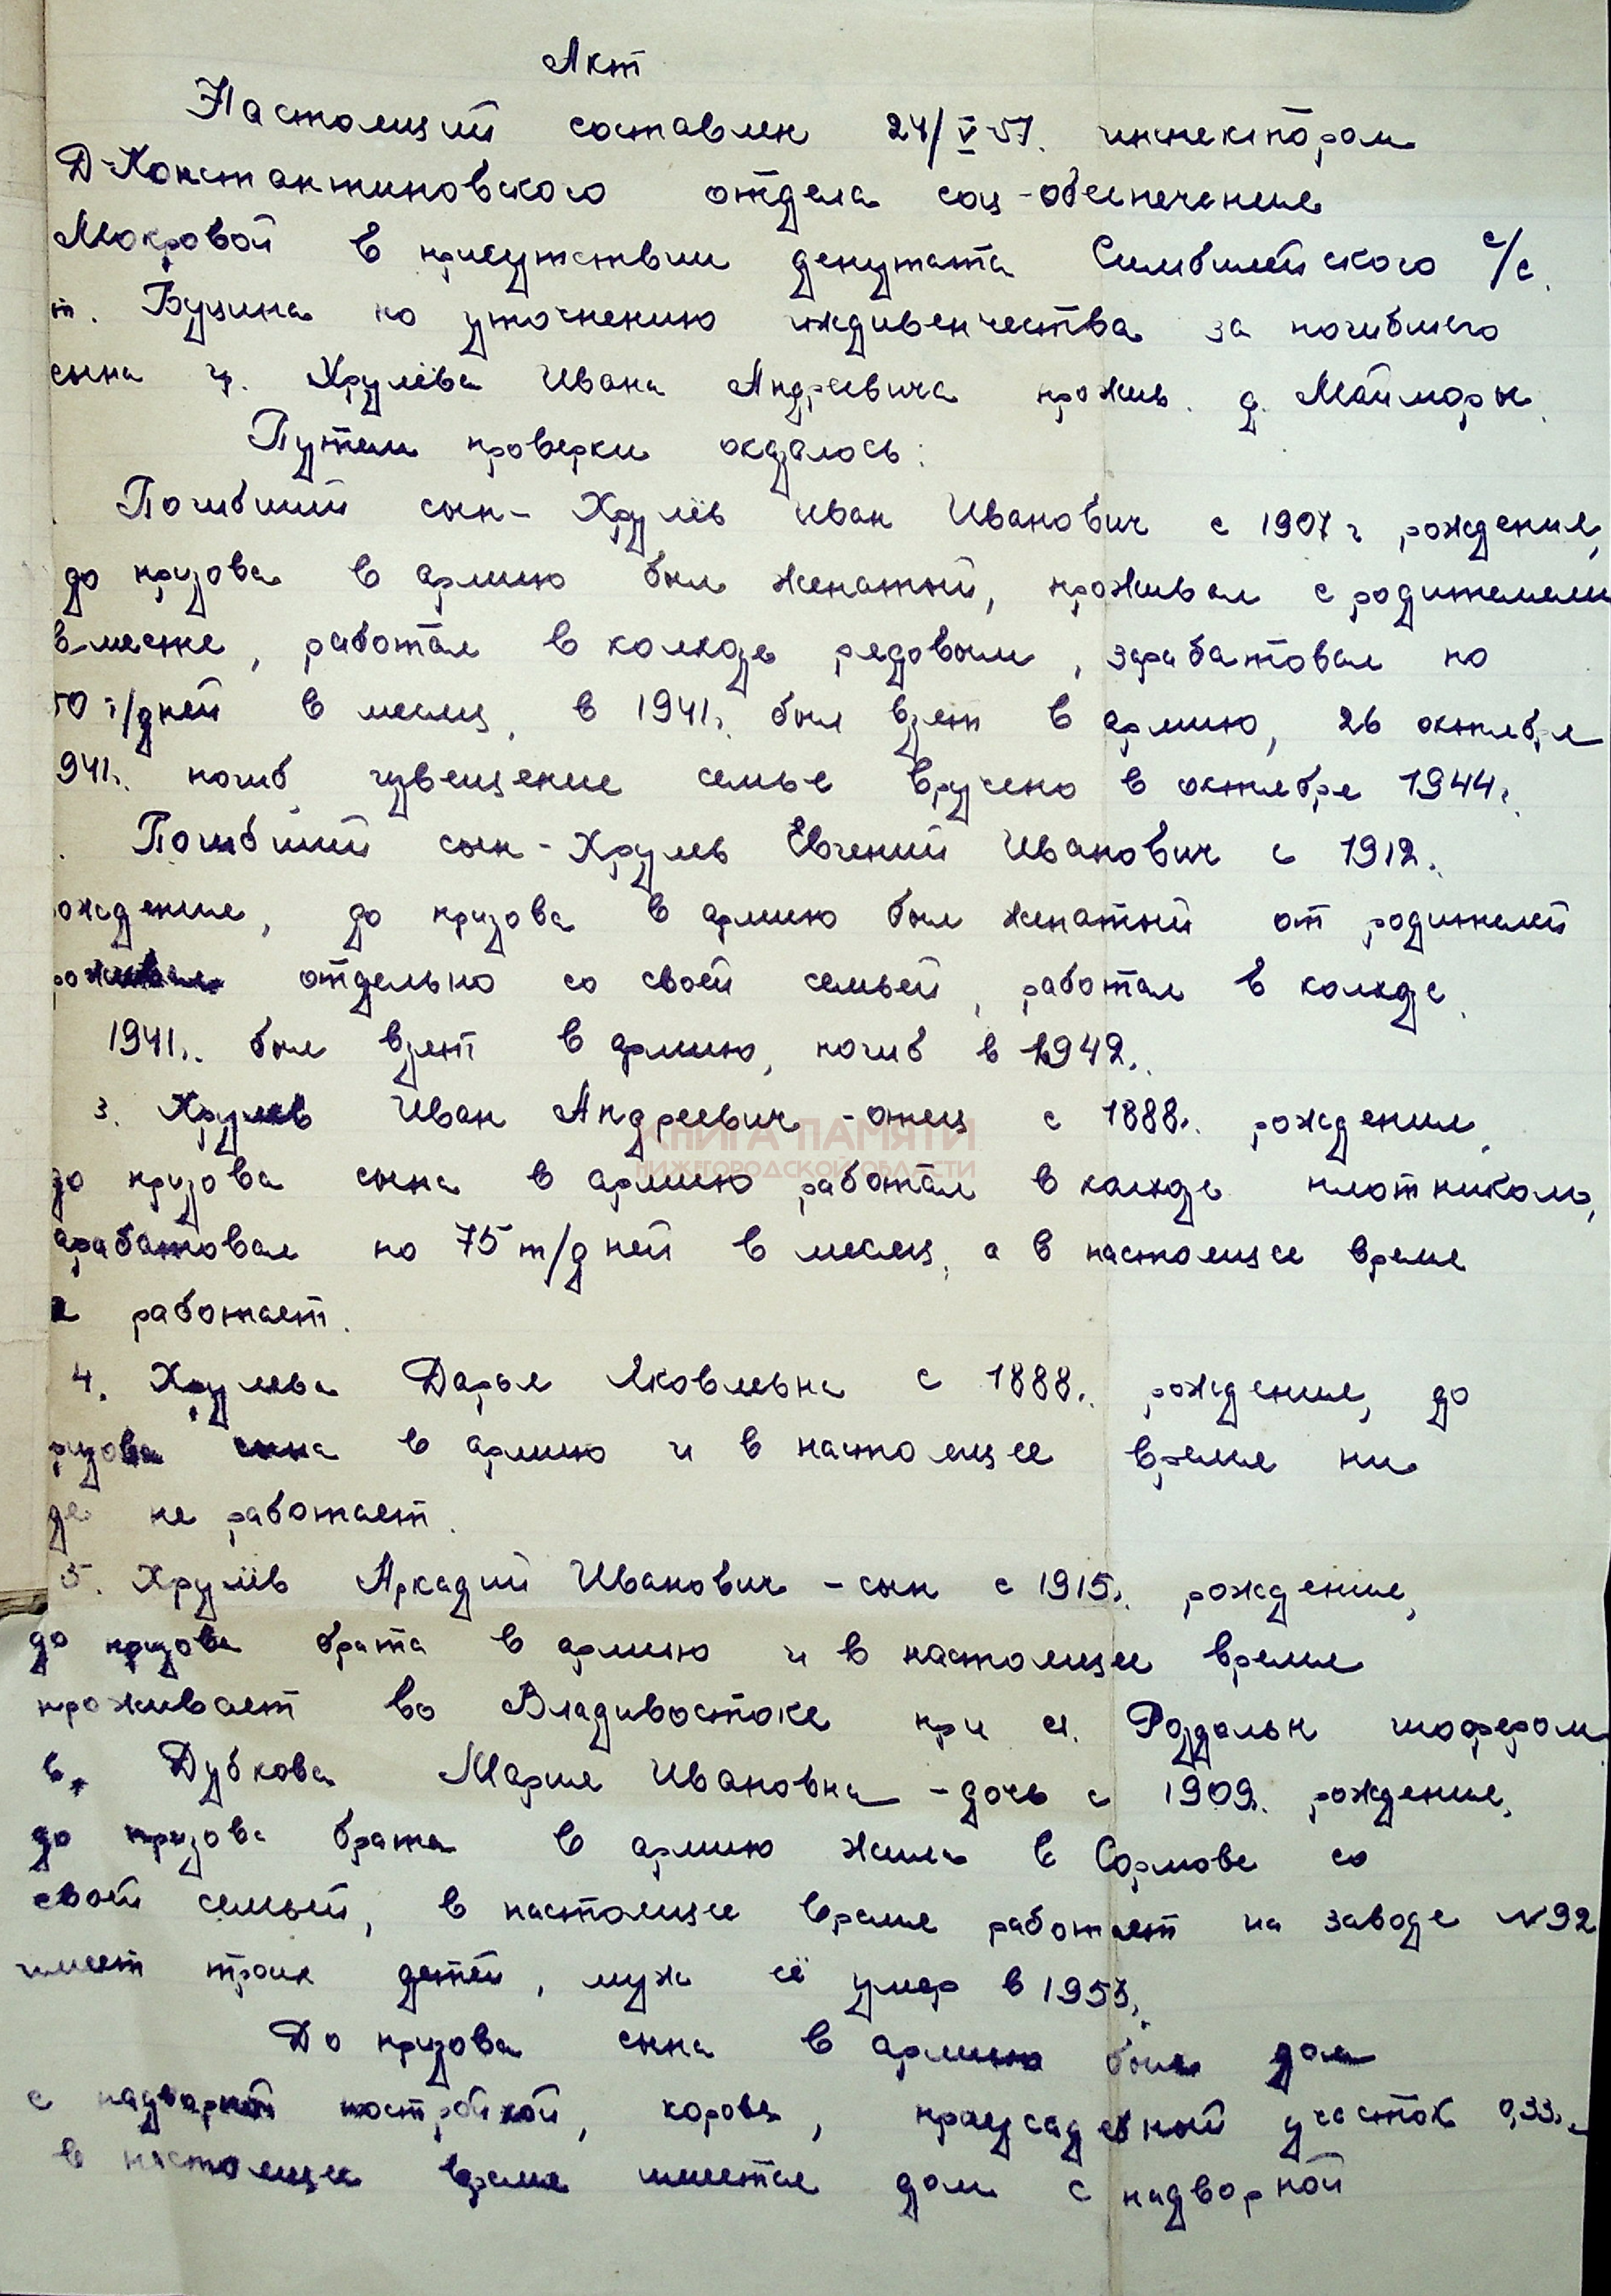 Акт
Настоящий составлен 24/V-57. инспектором
Д-Константиновского отдела соц-обеспечения
Мокровой в присутствии депутата Симбилейского с/с.
т. Бузина по уточнению иждивенчества за погибшего
сына гр. Хрулёва Ивана Андреевича прожив. д. Майморы.
Путем проверки окозалось:
Погибший сын- Хрулёв Иван Иванович с 1907 г рождения,
до призова в армию был женатый, проживал с родителями
вместе, работал в колхозе редовым, зарабатовал по
50 т/дней в месяц, в 1941г. был взят в армию, 26 октября
941г. погиб, извещение семье вручено в октябре 1944г.
Погибший сын-Хрулев Евгений Иванович с 1912г.
ождения, до призова в армию был женатый от родителей
роживал отдельно со своей семьей, работал в колхозе.
1941г. был взят в армию, погиб в 1942г.
3. Хрулев Иван Андреевич -отец с 1888г. рождения,
до призова сына в армию работал в колхозе плотником,
арабатовал по 75 т/дней в месяц, а в настоящее время
е работает.
КНИГА ПАМЯТИ
НИЖЕГОРОДСКОЙ ОБЛАСТИ
4. Хрулева Дарья Яковлевна с 1888г. рождения, до
ризова сына в армию и в настоящее время ни
де не работает.
5. Хрулёв Аркадий Иванович -сын с 1915г. рождения,
до призова брата в армию и в настоящее время
проживает во Владивостоке при ст. шофером.
6. Дубкова Мария Ивановна -дочь с 1909г. рождения,
до призова брата в армию жила в Сормове со
своей семьей, в настоящее время работает на заводе N92
имеет троих детей, муж её умер в 1953г.
До призова сына в армию был дом
с надворной постройкой, корова, приусадебный участок 0,33г.
в настоящее время имеется дом с надворной